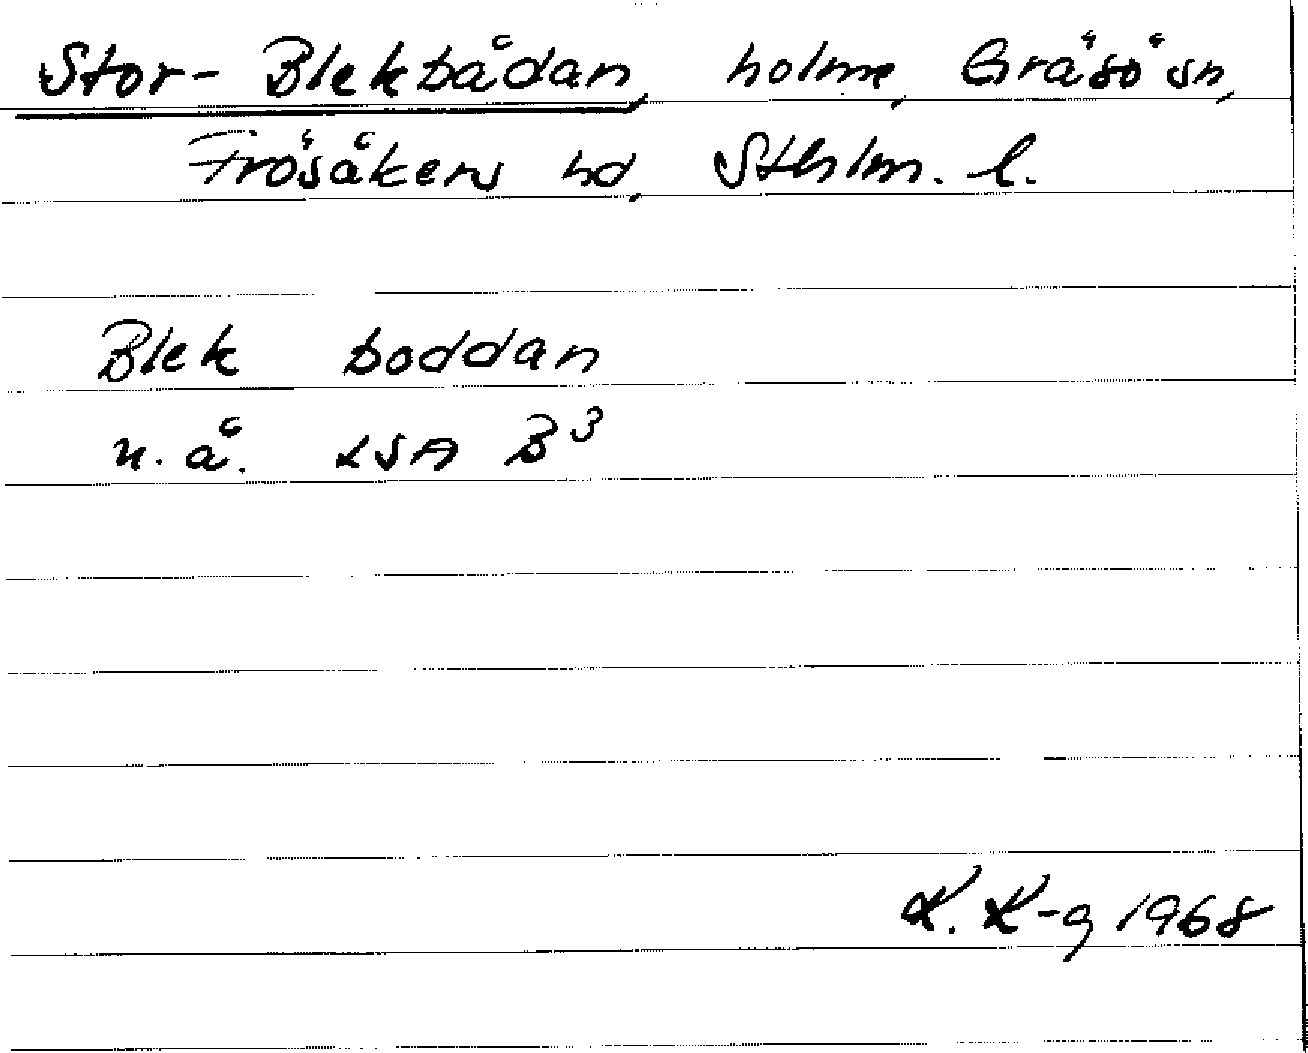 Stor-Blekbådan, holme, Gräsö sn,
Frösåkers hd, Sthlm. l.
Blek boddan
n. å. LSA B³
K. K-g 1968